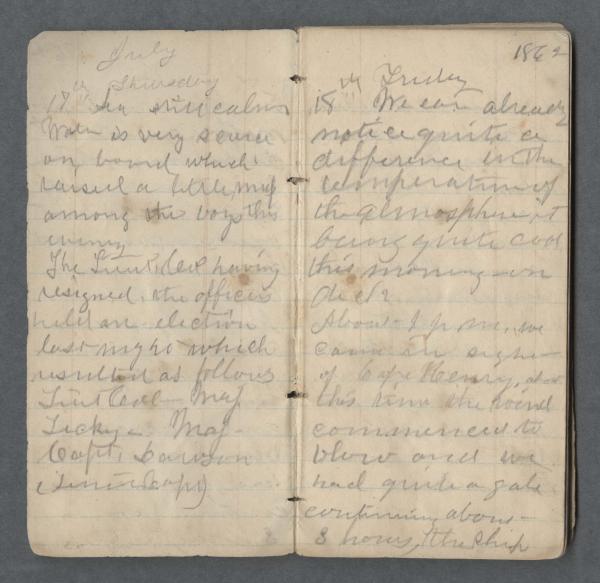 July
Thursday
18th Sea still calm
Water is very scarce
on board which
raised a little
among the boys this
evening
The Lieut Col having
resigned, the officers
held an election
last night which
resulted as follows
Lieut Col - Maj
Maj -
Capt, Dawson
(Senior Capt)
1862
Friday
18th We can already
notice quite a
difference in the
temperature of
the atmosphere it
being quite cool
this morning on
deck
About 1 p.m. we
came in sight
of Cape Henry, about
this time the wind
commenced to
blow and we
had quite a gale
continuing about
3 hours, the ship